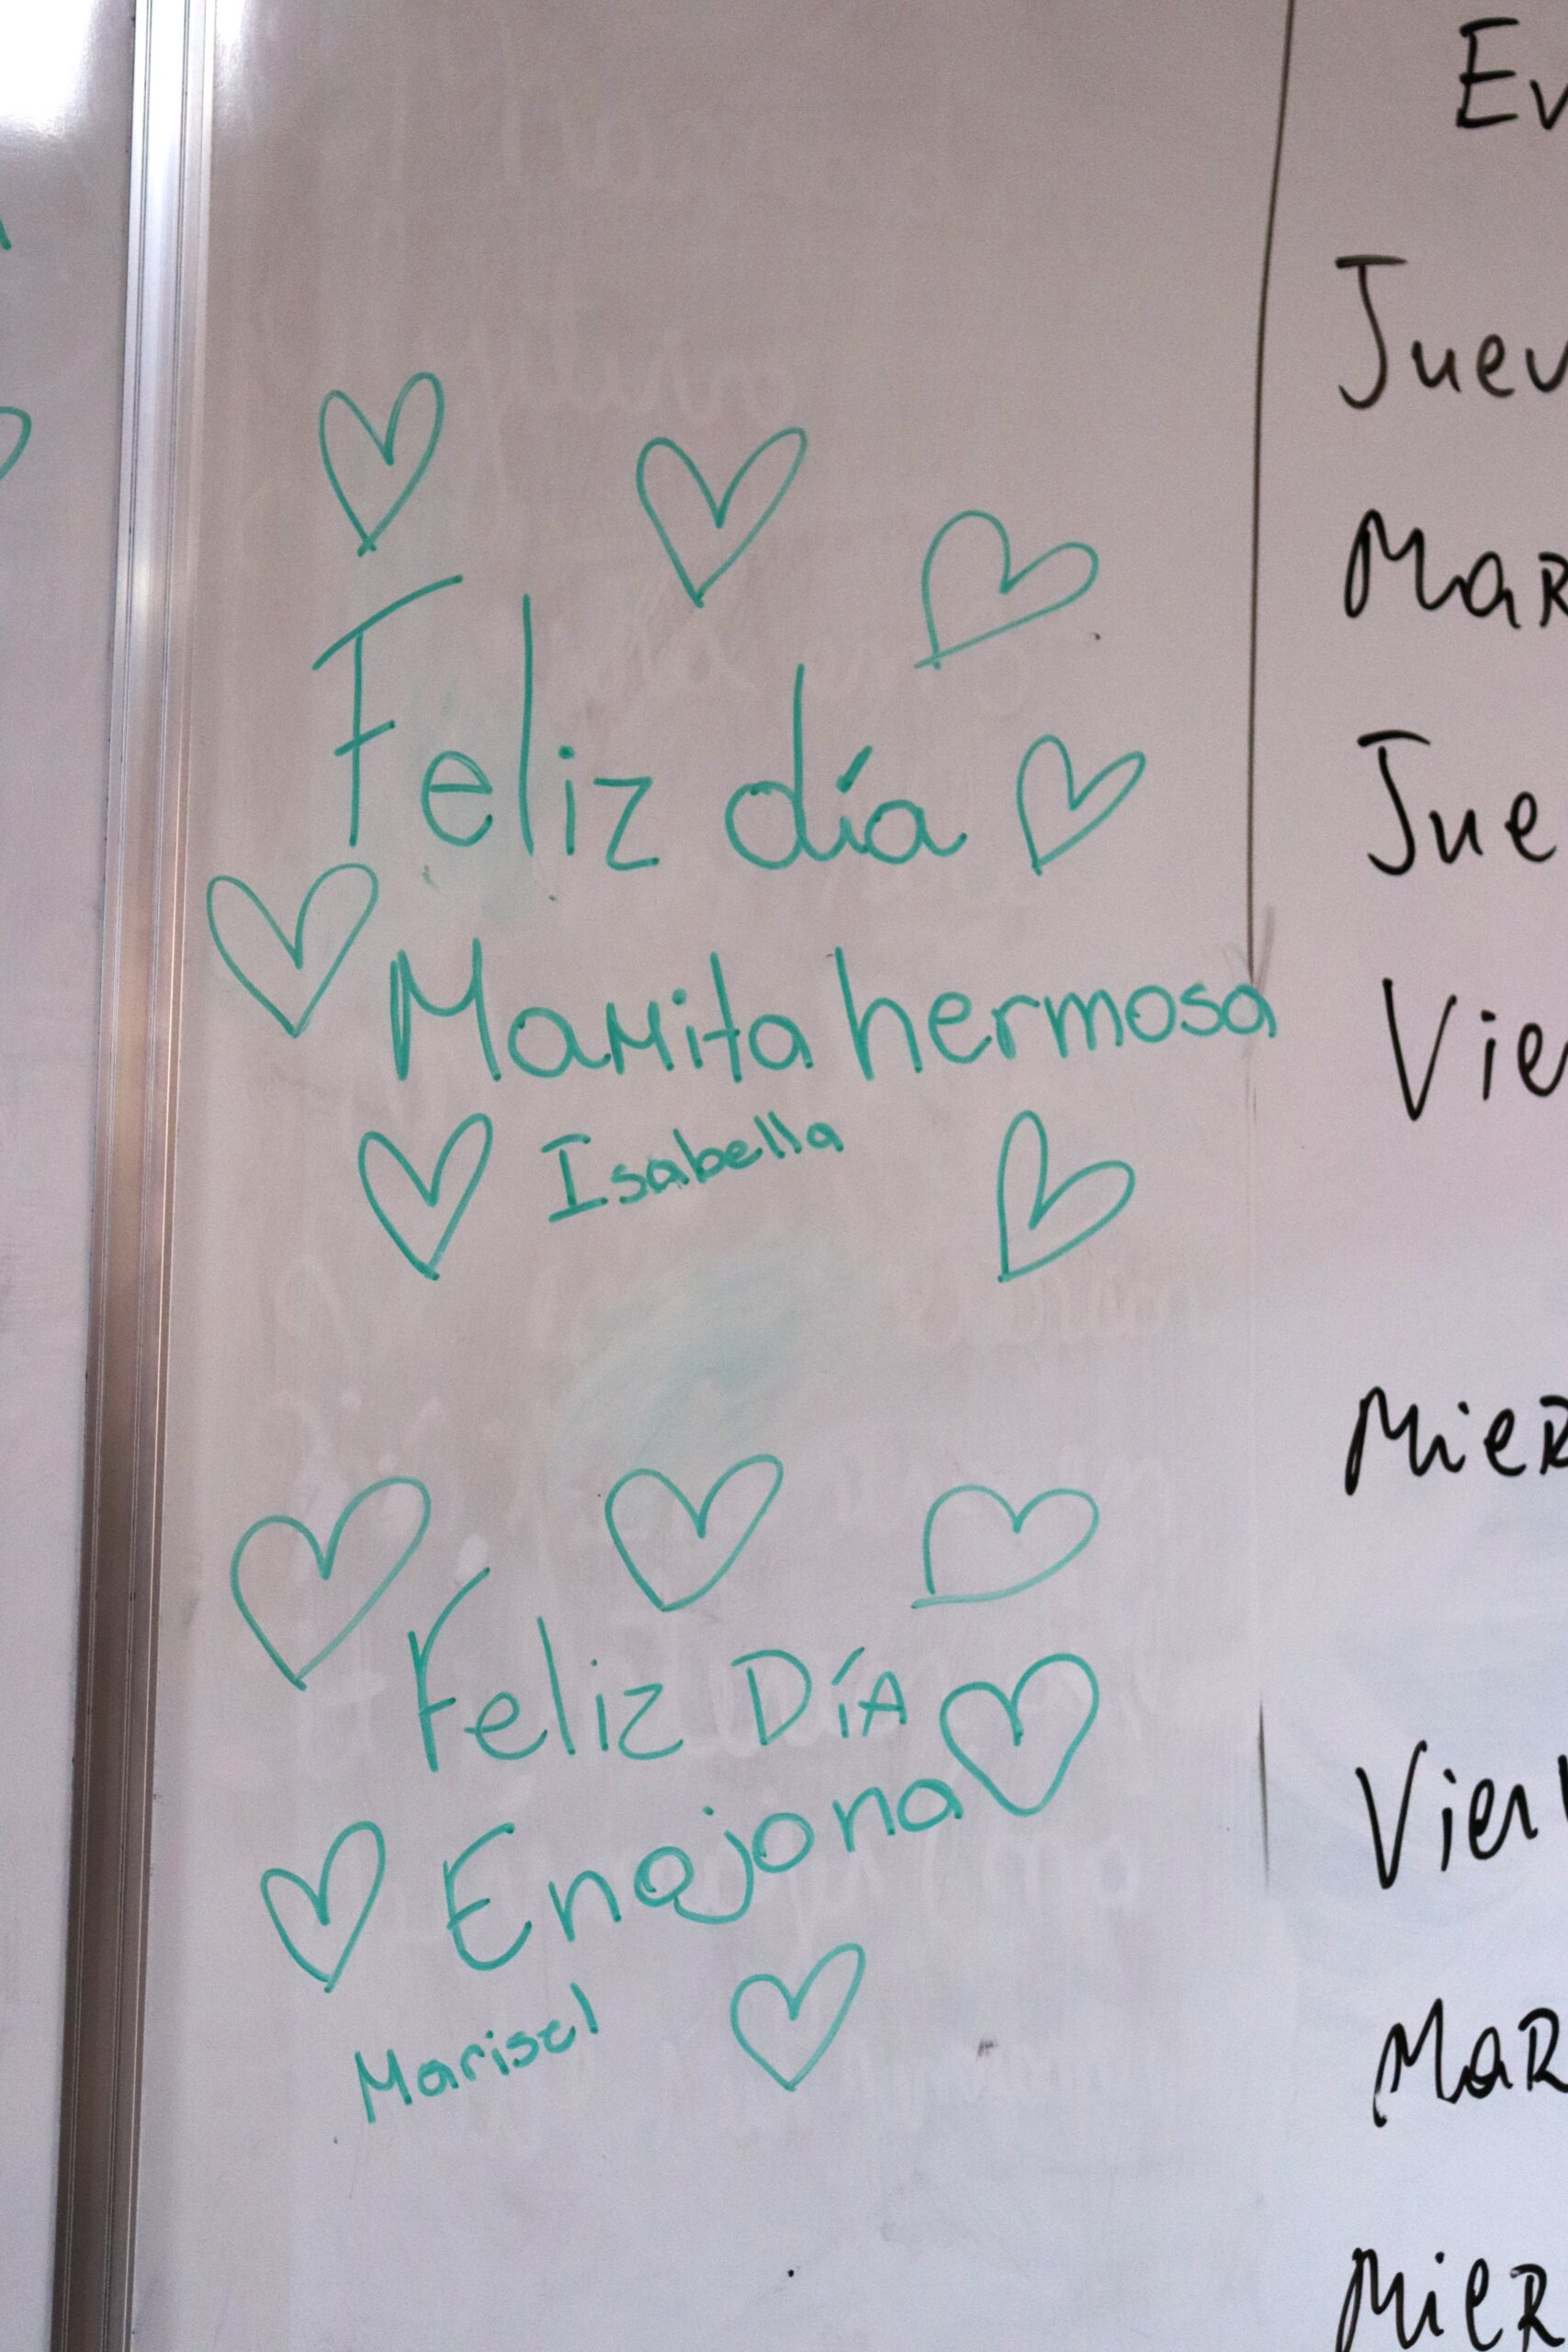 Feliz día
Mamita hermosa
Isabella
Feliz DÍA
Enojona
Marisel
Ev
Juev
MaR
Jue
Vie
MieR
Vier
MaR
MieR